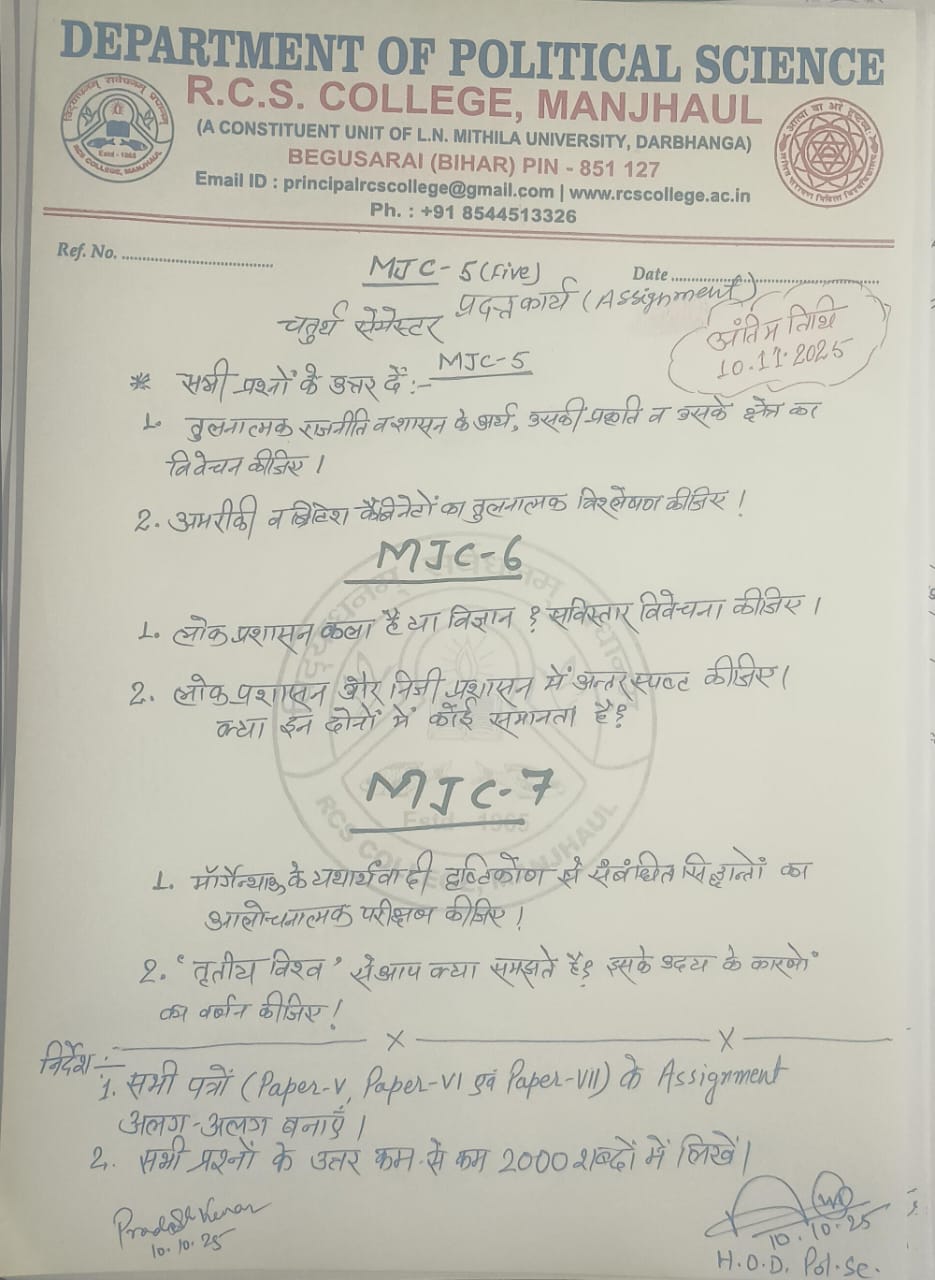 DEPARTMENT OF POLITICAL SCIENCE
R.C.S. COLLEGE, MANJHAUL
(A CONSTITUENT UNIT OF L.N. MITHILA UNIVERSITY, DARBHANGA)
BEGUSARAI (BIHAR) PIN - 851 127
Email ID : principalrcscollege@gmail.com | www.rcscollege.ac.in
Ph. : +91 8544513326
Estd - 1965
RCS COLLEGE, MANJHAUL
Ref. No. ..............................
Date ..............................
MJC - 5 (Five)
चतुर्थ सेमेस्टर प्रदत्त कार्य (Assignment)
अंतिम तिथि
10.11.2025
MJC-5
* सभी प्रश्नों के उत्तर दें :-
1. तुलनात्मक राजनीति व शासन के अर्थ, उसकी प्रकृति व उसके क्षेत्र का
विवेचन कीजिए ।
2. अमरीकी व ब्रिटिश कैबिनेटों का तुलनात्मक विश्लेषण कीजिए !
MJC-6
1. लोक प्रशासन कला है या विज्ञान ? सविस्तार विवेचना कीजिए ।
2. लोक प्रशासन और निजी प्रशासन में अन्तर स्पष्ट कीजिए ।
क्या इन दोनों में कोई समानता है ?
MJC-7
Estd - 1965
RCS COLLEGE, MANJHAUL
1. मॉर्गेन्थाऊ के यथार्थवादी दृष्टिकोण से संबंधित सिद्धान्तों का
आलोचनात्मक परीक्षण कीजिए !
2. ' तृतीय विश्व ' से आप क्या समझते हैं ? इसके उदय के कारणों
का वर्णन कीजिए !
X X
निर्देश :-
1. सभी पत्रों (Paper-V, Paper-VI एवं Paper-VII) के Assignment
अलग-अलग बनाएँ ।
2. सभी प्रश्नों के उत्तर कम से कम 2000 शब्दों में लिखें ।
10.10.25
10.10.25
H.O.D. Pol.Sc.